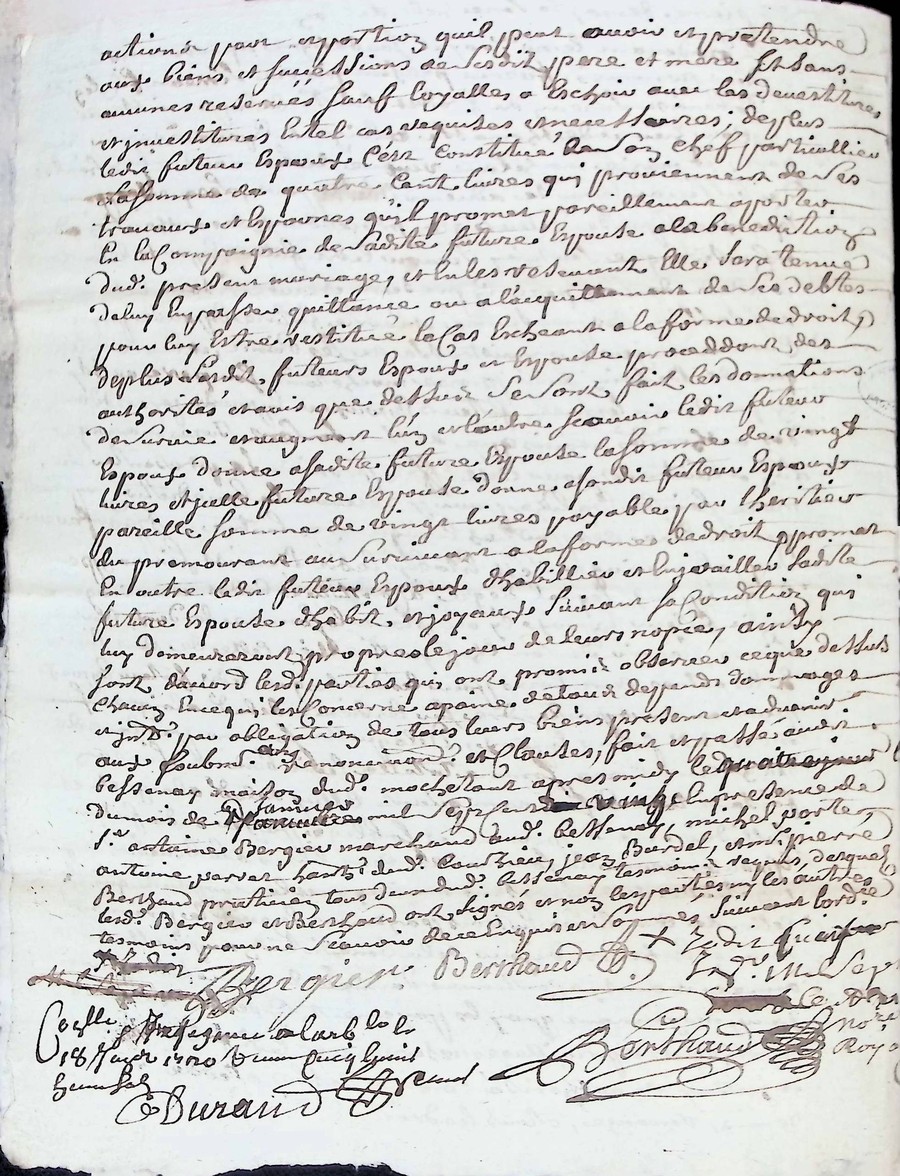 actions part et portion quil peut avoir et pretendre
aux biens et successions de sesdit pere et mere et sans
aucunes reserves sauf loyalles a Eschoir avec las devestitures
et jnvestitures En tel cas requises et necessaires; deplus
ledit futeur Espoux c'est constitué de son chéf particullier
la somme de quatre Cent livres qui proviennent de ses
travaux et Espargnes qu'il promet pareillement apporter
En la Compagnie de sadite future Epouse a la benediction
dud. present mariage, et En les recevant Elle sera tenue
de luy En passer quittance ou a l'acquittement de ses debtes
pour luy Estre restitué le Cas Escheant a la forme de droit,
deplus lesdit. futeurs Espoux et Espouse proceddant, des
authorités et avis que dessus se sont fait les donnations
de survie et augment l'un et l'autre scavoir ledit futeur
Espoux donne a sadite future Epouse la somme de vingt
livres et jcelle future Espouse donne a sondit futeur Espoux
pareille somme de vingt livres payable par l'heritier
du premourant au survivant a la forme de droit, promet
En outre ledit futeur Espoux d'habillier et Enjoailler sadite
future Espouse d'habit, et joyaux suivant sa Condition qui
luy demeureront propres le jour de leurs nopce, ainsy
sont d'accord lesd. parties qui ont promis observer ce que dessus
chacun En ce qui les Concerne a paine de tous depands dommages
et jnts. par obligation de tous leurs biens present et advenir
aux soubmons. renonciaons. et Clauses, fait et passé audit
bessenay maison dud. mochetant apres midy le
du mois de janvier mil sept cent vingt En presence de
sr. antoine Bergier marchand dud. bessenay, michel porte,
antoine pervet hantt. dud. Courzieu, jean Burdel, et mr. pierre
Berthaud praticien tous dem. aud. bessenay tesmoins requis, desquels
lesd. Bergier et Berthaud ont signés et non les parties ny les autres
tesmoins pour ne scavoir de ce Enquis et sommés, suivant lordce.
Bergier Berthaud
Berthaud
nore
Roya
18 janer 1720
Durand